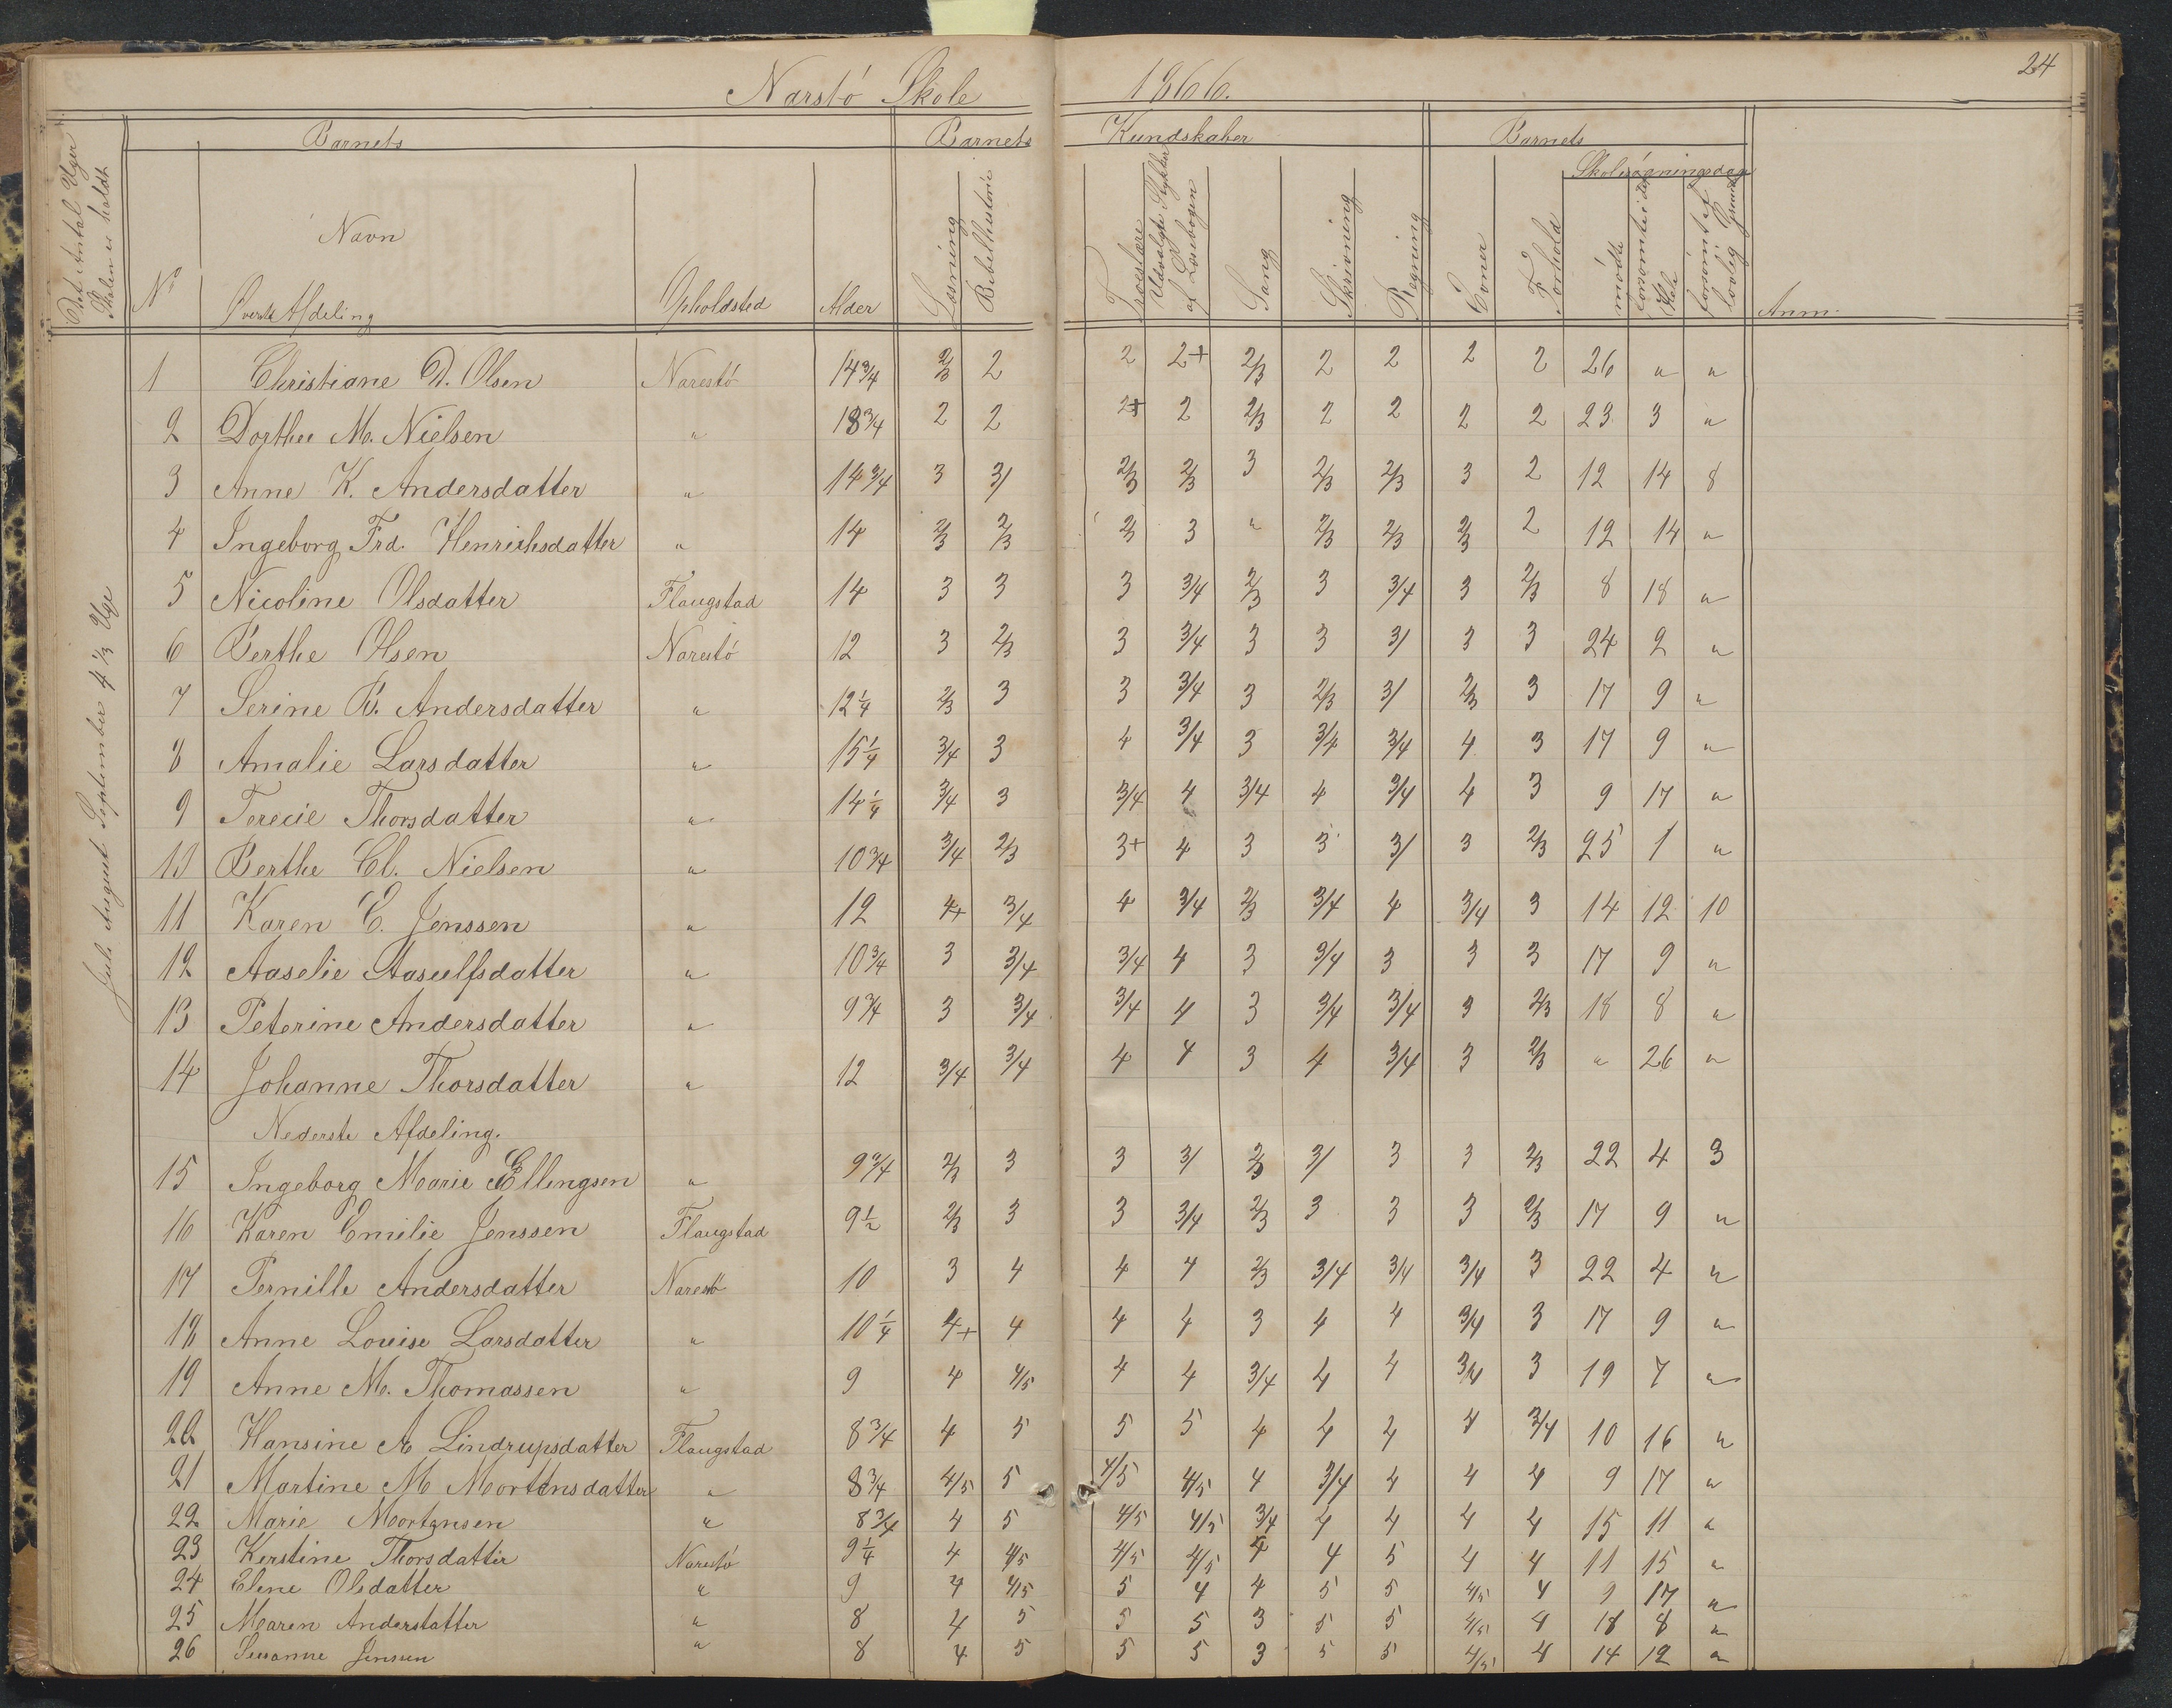 24
Narstó Skole 1866.
Barnets Barnets Kundskaber Barnets
Skolesøgningsdage
Det Antal Uger Skolen er holdt
No Navn Øverste Afdeling Opholdsted Alder Læsning Bibelhistorie Troeslære Udvalgte Stykker af Læsebogen Sang Skrivning Regning Evner Forhold mødte forsømte i det Hele forsømt af lovlig Grund Anm.
Juli August September 4 1/3 Uge
1 Christiane D. Olsen Narestó 14 3/4 2/3 2 2 2+ 2/3 2 2 2 2 26 " "
2 Dorthee M. Nielsen " 13 3/4 2 2 2+ 2 2/3 2 2 2 2 23 3 "
3 Anne K. Andersdatter " 14 3/4 3 3/ 2/3 2/3 3 2/3 2/3 3 2 12 14 8
4 Ingeborg Frd. Henrichsdatter " 14 2/3 2/3 2/3 3 " 2/3 2/3 2/3 2 12 14 "
5 Nicoline Olsdatter Flaugstad 14 3 3 3 3/4 2/3 3 3/4 3 2/3 8 18 "
6 Berthe Olsen Narestó 12 3 2/3 3 3/4 3 3 3/ 3 3 24 2 "
7 Serine B. Andersdatter " 12 1/4 2/3 3 3 3/4 3 2/3 3/ 2/3 3 17 9 "
8 Amalie Larsdatter " 15 1/4 3/4 3 4 3/4 3 3/4 3/4 4 3 17 9 "
9 Terecie Thorsdatter " 14 1/4 3/4 3 3/4 4 3/4 4 3/4 4 3 9 17 "
10 Berthe Cl. Nielsen " 10 3/4 3/4 2/3 3+ 4 3 3 3/ 3 2/3 25 1 "
11 Karen E. Jenssen " 12 4+ 3/4 4 3/4 2/3 3/4 4 3/4 3 14 12 10
12 Aaselie Aasulfsdatter " 10 3/4 3 3/4 3/4 4 3 3/4 3 3 3 17 9 "
13 Peterine Andersdatter " 9 3/4 3 3/4 3/4 4 3 3/4 3/4 3 2/3 18 8 "
14 Johanne Thorsdatter " 12 3/4 3/4 4 4 3 4 3/4 3 2/3 " 26 "
Nederste Afdeling.
15 Ingeborg Marie Ellingsen " 9 3/4 2/3 3 3 3/ 2/3 3/ 3 3 2/3 22 4 3
16 Karen Emilie Jenssen Flaugstad 9 1/2 2/3 3 3 3/4 2/3 3 3 3 2/3 17 9 "
17 Pernille Andersdatter Narestó 10 3 4 4 4 2/3 3/4 3/4 3/4 3 22 4 "
18 Anne Louise Larsdatter " 10 1/4 4+ 4 4 4 3 4 4 3/4 3 17 9 "
19 Anne M. Thomassen " 9 4 4/5 4 4 3/4 4 4 3/4 3 19 7 "
20 Hansine A Lindrupsdatter Flaugstad 8 3/4 4 5 5 5 4 4 4 4 3/4 10 16 "
21 Martine M Mortensdatter " 8 3/4 4/5 5 4/5 4/5 4 3/4 4 4 4 9 17 "
22 Marie Mortensen " 8 3/4 4 5 4/5 4/5 3/4 4 4 4 4 15 11 "
23 Kerstine Thorsdatter Narestó 9 1/4 4 4/5 4/5 4/5 4 4 5 4 4 11 15 "
24 Elene Olsdatter " 9 4 4/5 5 4 4 5 5 4/5 4 9 17 "
25 Maren Anderstatter " 8 4 5 5 5 3 5 5 4/5 4 18 8 "
26 Susanne Jensen " 8 4 5 5 5 3 5 5 4/5 4 14 12 "